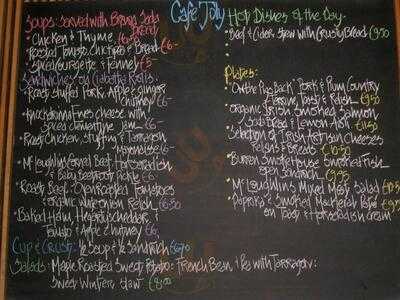 Café Jolly
Soups: Served with Brown Soda Bread
• Chicken & Thyme €6.50
• Roasted Tomato, Chickpea & Bread €6-
• Spiced Courgette & Fennel €5-
Sandwiches
• Roast Stuffed Pork, Apple & ginger
Chutney €6-
• Knockdrinna Ewes cheese with
Spiced Clementine Jam €6-
• Roast Chicken, Stuffing & Tarragon
Mayonnaise €6-
• McLoughlin's Corned Beef, Horseradish
& Baby Beetroot Pickle
• Roast Beef, Open Roasted Tomatoes
& Onion Relish €6.50
• Baked Ham, Hegarty's cheddar, &
Tomato & Apple Chutney €6-
Cup & Crust: ½ Soup & ½ Sandwich €6.70
Salads: Maple Roasted Sweet Potato: French Bean & Pea with Tarragon:
Sweet Winter Slaw €8.00
Hot Dishes of the Day:
• Beef & Cider Stew with Crusty Bread €9.50
Plates:
• On the Pig's Back Pork & Plum Country
Terrine, Toast & Relish €9.50
• Organic Irish Smoked Salmon
Soda Bread & Lemon Mayo €11.50
• Selection of Irish Artisan Cheeses
Relishes & Breads €10.50
• Burren Smokehouse Smoked Fish
open Sandwich €9.95
• McLoughlin's Mixed Meat Salad €10.50
• Paprika & Smoked Mackerel Paté €9.95
on Toast & Horseradish cream